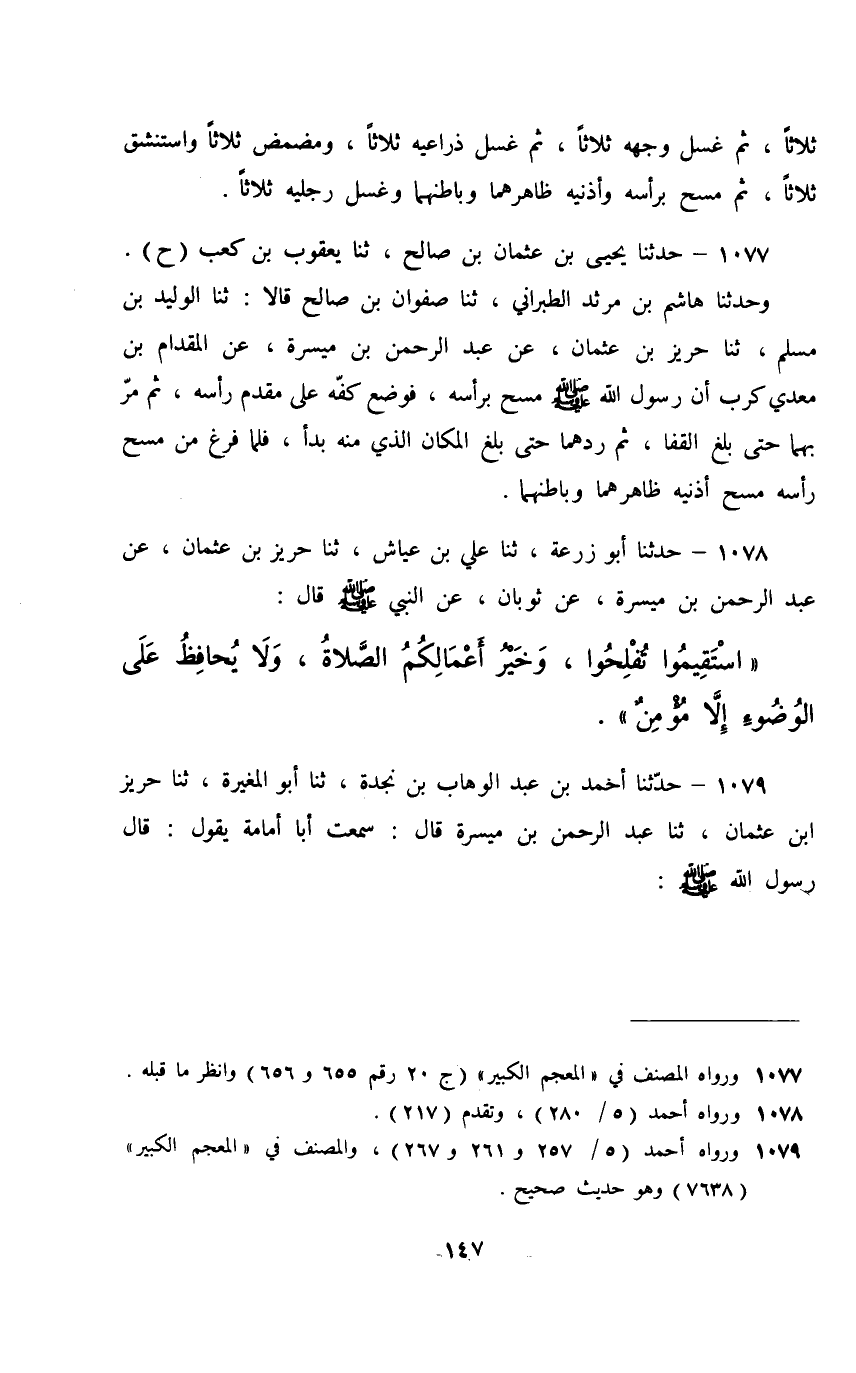 ثلاثاً ، ثم غسل وجهه ثلاثاً ، ثم غسل ذراعيه ثلاثاً ، ومضمض ثلاثاً واستنشق
ثلاثاً ، ثم مسح برأسه وأذنيه ظاهرهما وباطنهما وغسل رجليه ثلاثاً .
١٠٧٧ – حدثنا يحيى بن عثمان بن صالح ، ثنا يعقوب بن كعب (ح) .
وحدثنا هاشم بن مرثد الطبراني ، ثنا صفوان بن صالح قالا : ثنا الوليد بن
مسلم ، ثنا حريز بن عثمان ، عن عبد الرحمن بن ميسرة ، عن المقدام بن
معدي كرب أن رسول الله ﷺ مسح برأسه ، فوضع كفّه على مقدم رأسه ، ثم مرّ
بهما حتى بلغ القفا ، ثم ردهما حتى بلغ المكان الذي منه بدأ ، فلما فرغ من مسح
رأسه مسح أذنيه ظاهرهما وباطنهما .
١٠٧٨ – حدثنا أبو زرعة ، ثنا علي بن عياش ، ثنا حريز بن عثمان ، عن
عبد الرحمن بن ميسرة ، عن ثوبان ، عن النبي ﷺ قال :
« اسْتَقِيمُوا تُفْلِحُوا ، وَخَيْرُ أَعْمَالِكُمُ الصَّلاةُ ، وَلَا يُحافِظُ عَلَى
الوُضُوءِ إِلَّا مُؤْمِنٌ» .
١٠٧٩ – حدّثنا أحمد بن عبد الوهاب بن نجدة ، ثنا أبو المغيرة ، ثنا حريز
ابن عثمان ، ثنا عبد الرحمن بن ميسرة قال : سمعت أبا أمامة يقول : قال
رسول الله ﷺ :
١٠٧٧ ورواه المصنف في «المعجم الكبير» (ج ٢٠ رقم ٦٥٥ و ٦٥٦) وانظر ما قبله .
١٠٧٨ ورواه أحمد (٥/ ٢٨٠) ، وتقدم (٢١٧) .
١٠٧٩ ورواه أحمد (٥/ ٢٥٧ و ٢٦١ و ٢٦٧) ، والمصنف في «المعجم الكبير»
(٧٦٣٨) وهو حديث صحيح .
١٤٧